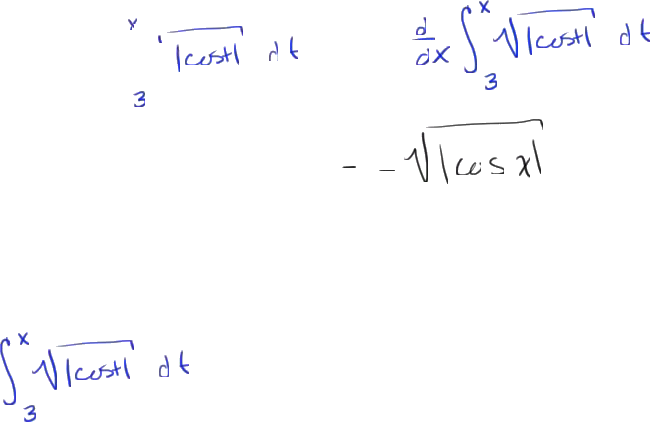 x
3 √|cost| dt
d/dx ∫₃ˣ √|cost| dt
- - √|cos x|
∫₃ˣ √|cost| dt